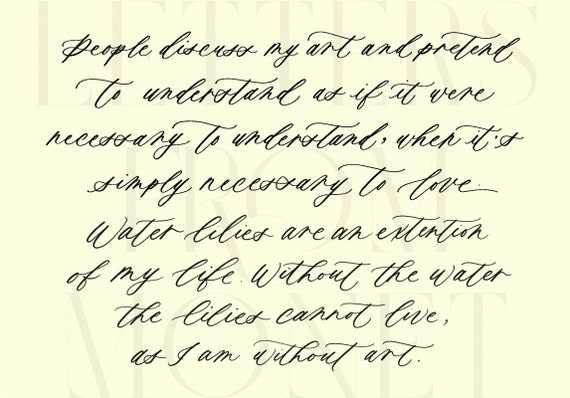 LETTERS
People discuss my art and pretend
to understand as if it were
necessary to understand, when it's
FROM
simply necessary to love.
Water lilies are an extention
of my life. Without the water
the lilies cannot live,
MONET
as I am without art.